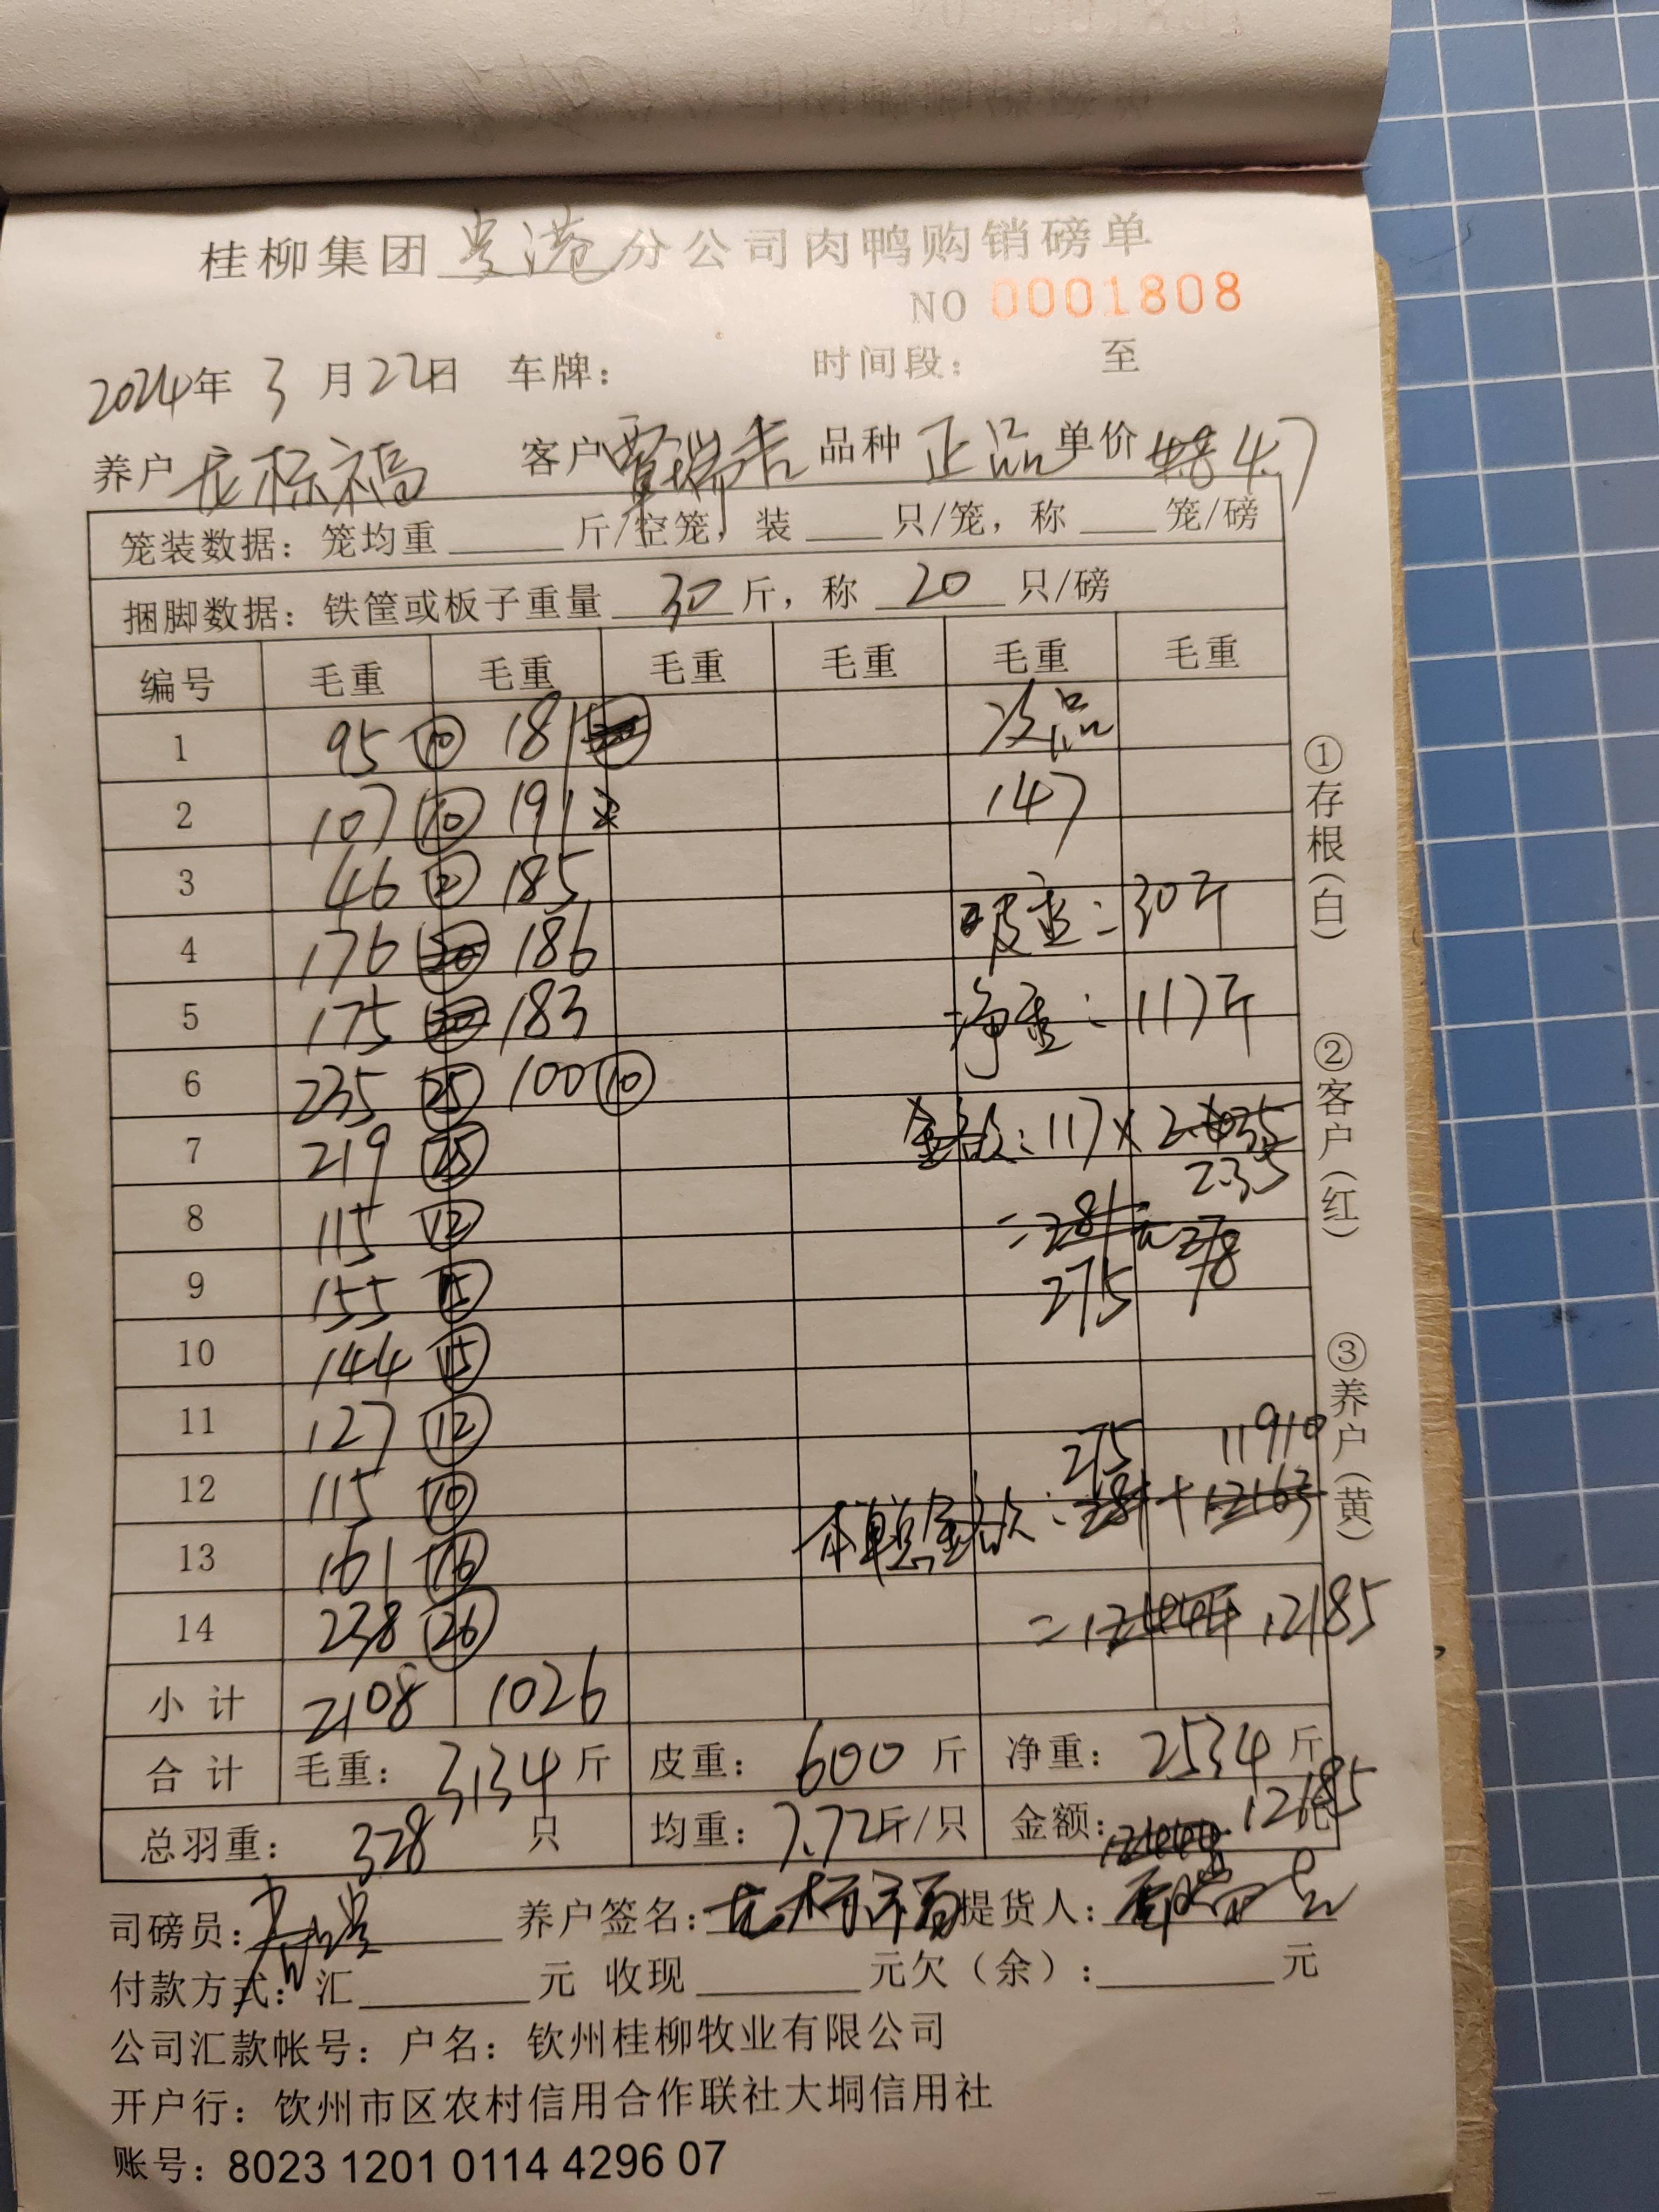 桂柳集团贵港分公司肉鸭购销磅单
NO 0001808
2024年 3 月 22日 车牌： 时间段： 至
养户 龙标福 客户 覃瑞吉 品种 正品 单价 4.8 4.7
笼装数据：笼均重 斤/空笼，装 只/笼，称 笼/磅
捆脚数据：铁筐或板子重量 30 斤，称 20 只/磅
编号 毛重 毛重 毛重 毛重 毛重 毛重
1 95 ⑩ 181 次品
2 107 ⑩ 191 147
3 46 185
4 176 ⑳ 186 皮重：30斤
5 175 ⑳ 183 净重：117斤
6 235 ㉕ 100 ⑩
7 219 ㉕ 金额：117×2.4035
2.35
8 115 ⑫ =281元 278
9 155 ⑮ 275
10 144 ⑮
11 127 ⑫ 275 11910
12 115 ⑩ 本单总金额：281+12163
13 161 ⑯
14 238 ㉖ =12444 12185
小计 2108 1026
合计 毛重：3134斤 皮重：600斤 净重：2534斤
总羽重：328 只 均重：7.72斤/只 金额：12444 12185元
司磅员： 养户签名：龙标福 提货人：覃瑞吉
付款方式：汇 元 收现 元欠（余）： 元
公司汇款帐号：户名：钦州桂柳牧业有限公司
开户行：钦州市区农村信用合作联社大垌信用社
账号：8023 1201 0114 4296 07
①存根（白）
②客户（红）
③养户（黄）